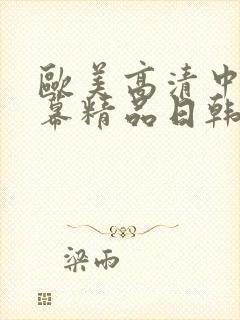 歐美高清中
幕精品日韓
梁雨